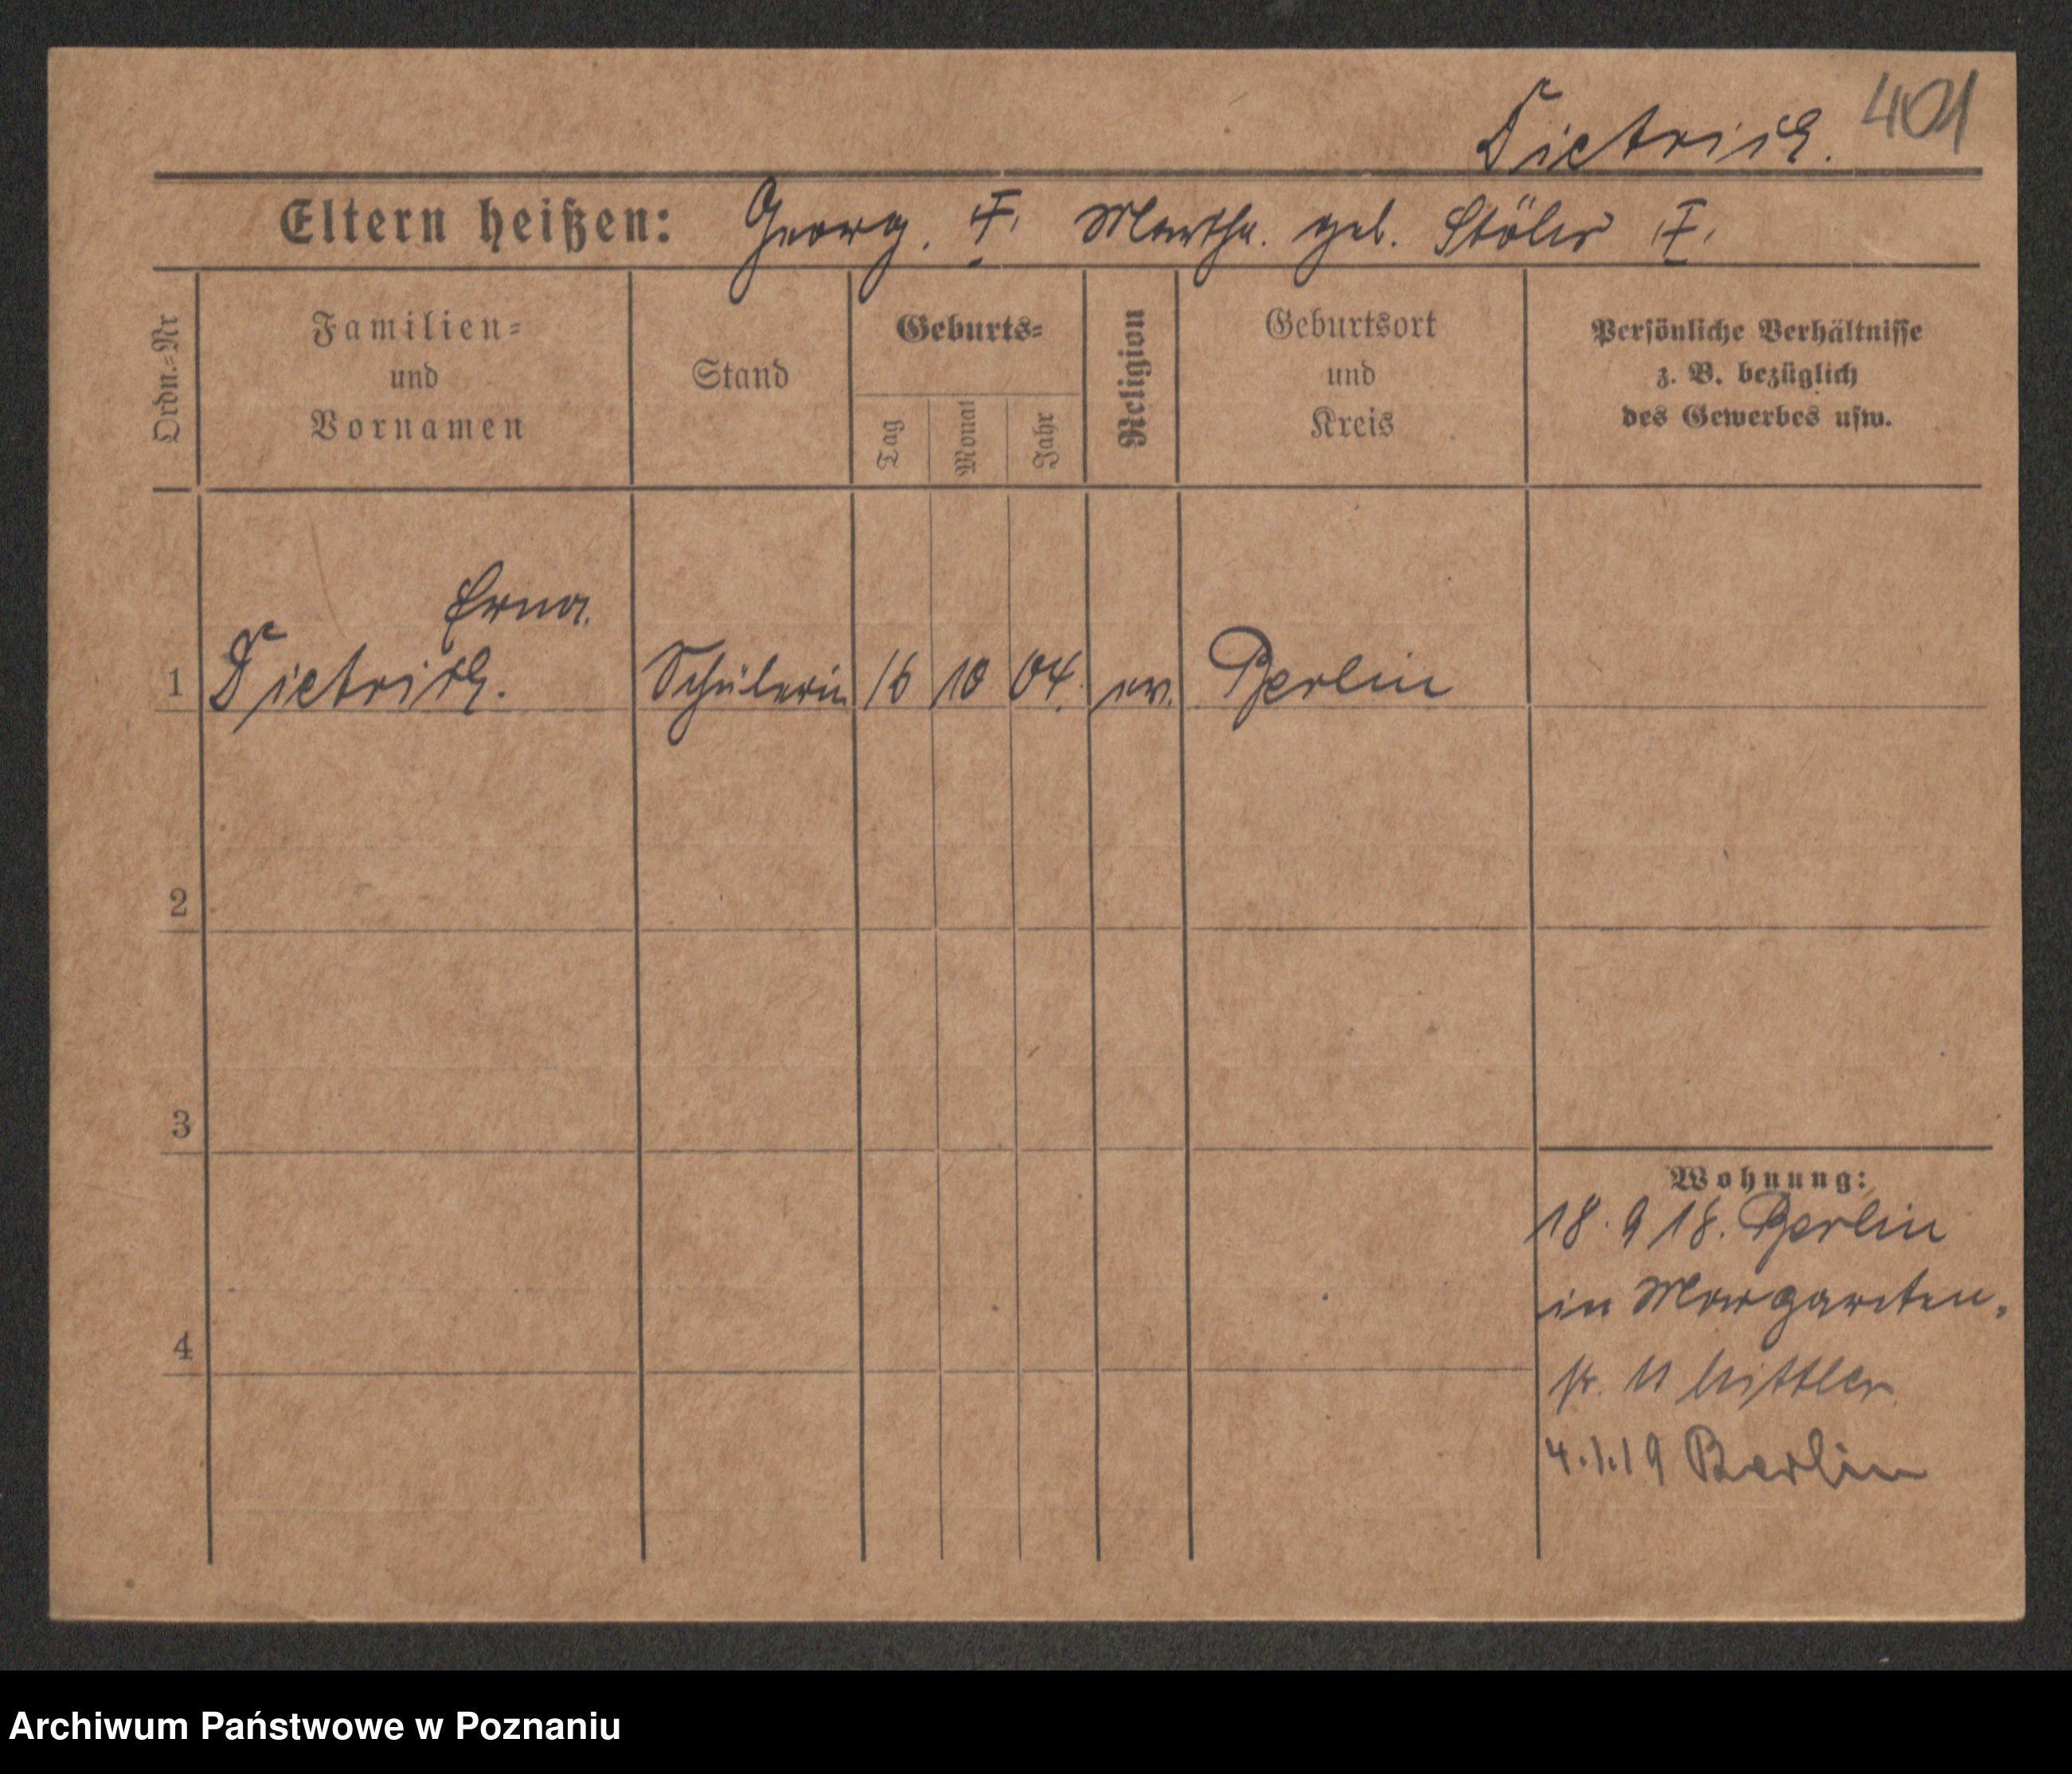 Dietrich. 401
Eltern heißen: Georg. †. Martha. geb. Stöhr †.
Ordn.=Nr
Familien=
und
Vornamen
Stand
Geburts=
Tag
Monat
Jahr
Religion
Geburtsort
und
Kreis
Persönliche Verhältnisse
z. B. bezüglich
des Gewerbes usw.
Erna.
1 Dietrich. Schülerin 16 10 04. ev. Berlin
2
3
Wohnung:
18. 9 18. Berlin
in Margareten.
4
str. 11
4.1.19 Berlin
Archiwum Państwowe w Poznaniu